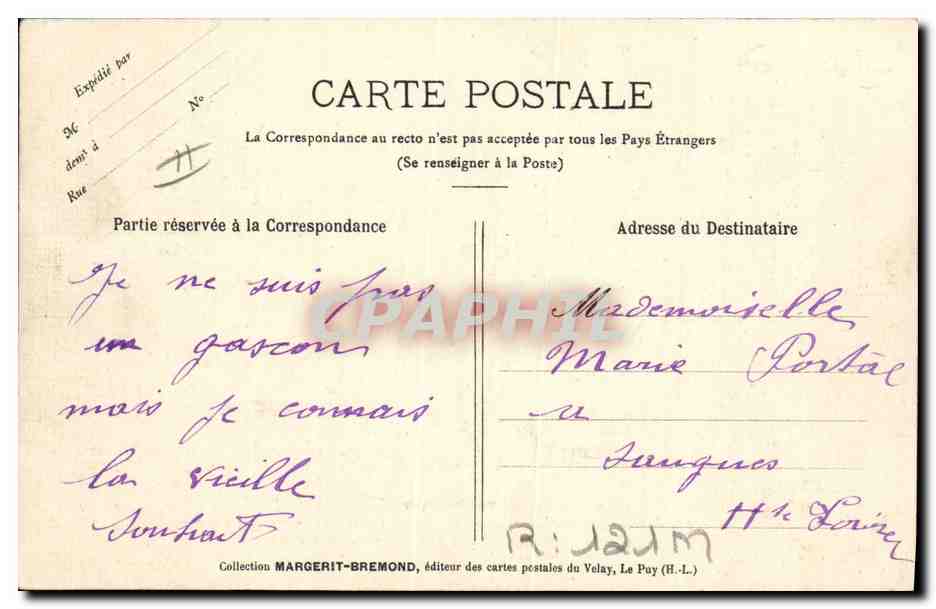 Expédié par
M
demt à
Rue
No
H
CARTE POSTALE
La Correspondance au recto n'est pas acceptée par tous les Pays Étrangers
(Se renseigner à la Poste)
Partie réservée à la Correspondance
Je ne suis pas
un gascon
mais je connais
la vieille
Adresse du Destinataire
Mademoiselle
Marie Portal
a
Saugues
Hte Loire
CPAPHIL
R: 121M
Collection MARGERIT-BREMOND, éditeur des cartes postales du Velay, Le Puy (H.-L.)